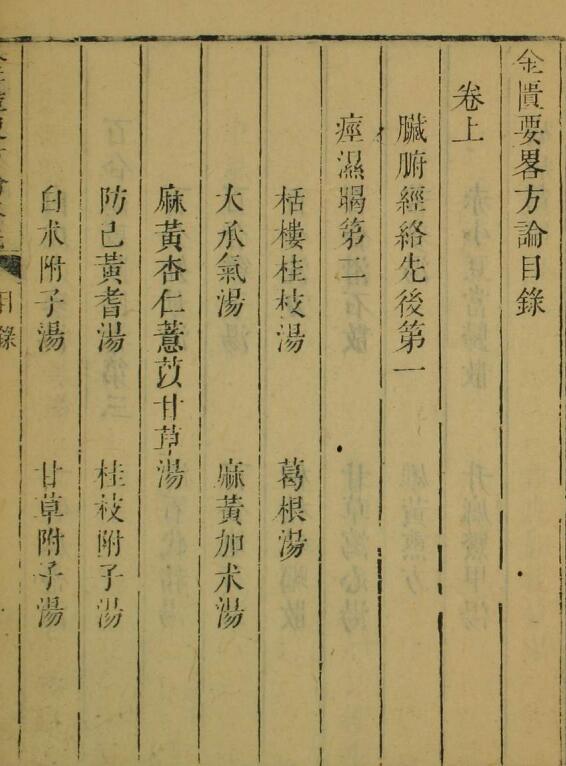 金匱要畧方論目錄
卷上
臟腑經絡先後第一
痙濕暍第二
栝樓桂枝湯　葛根湯
大承氣湯　麻黃加朮湯
麻黃杏仁薏苡甘草湯
防己黃耆湯　桂枝附子湯
白朮附子湯　甘草附子湯
目錄